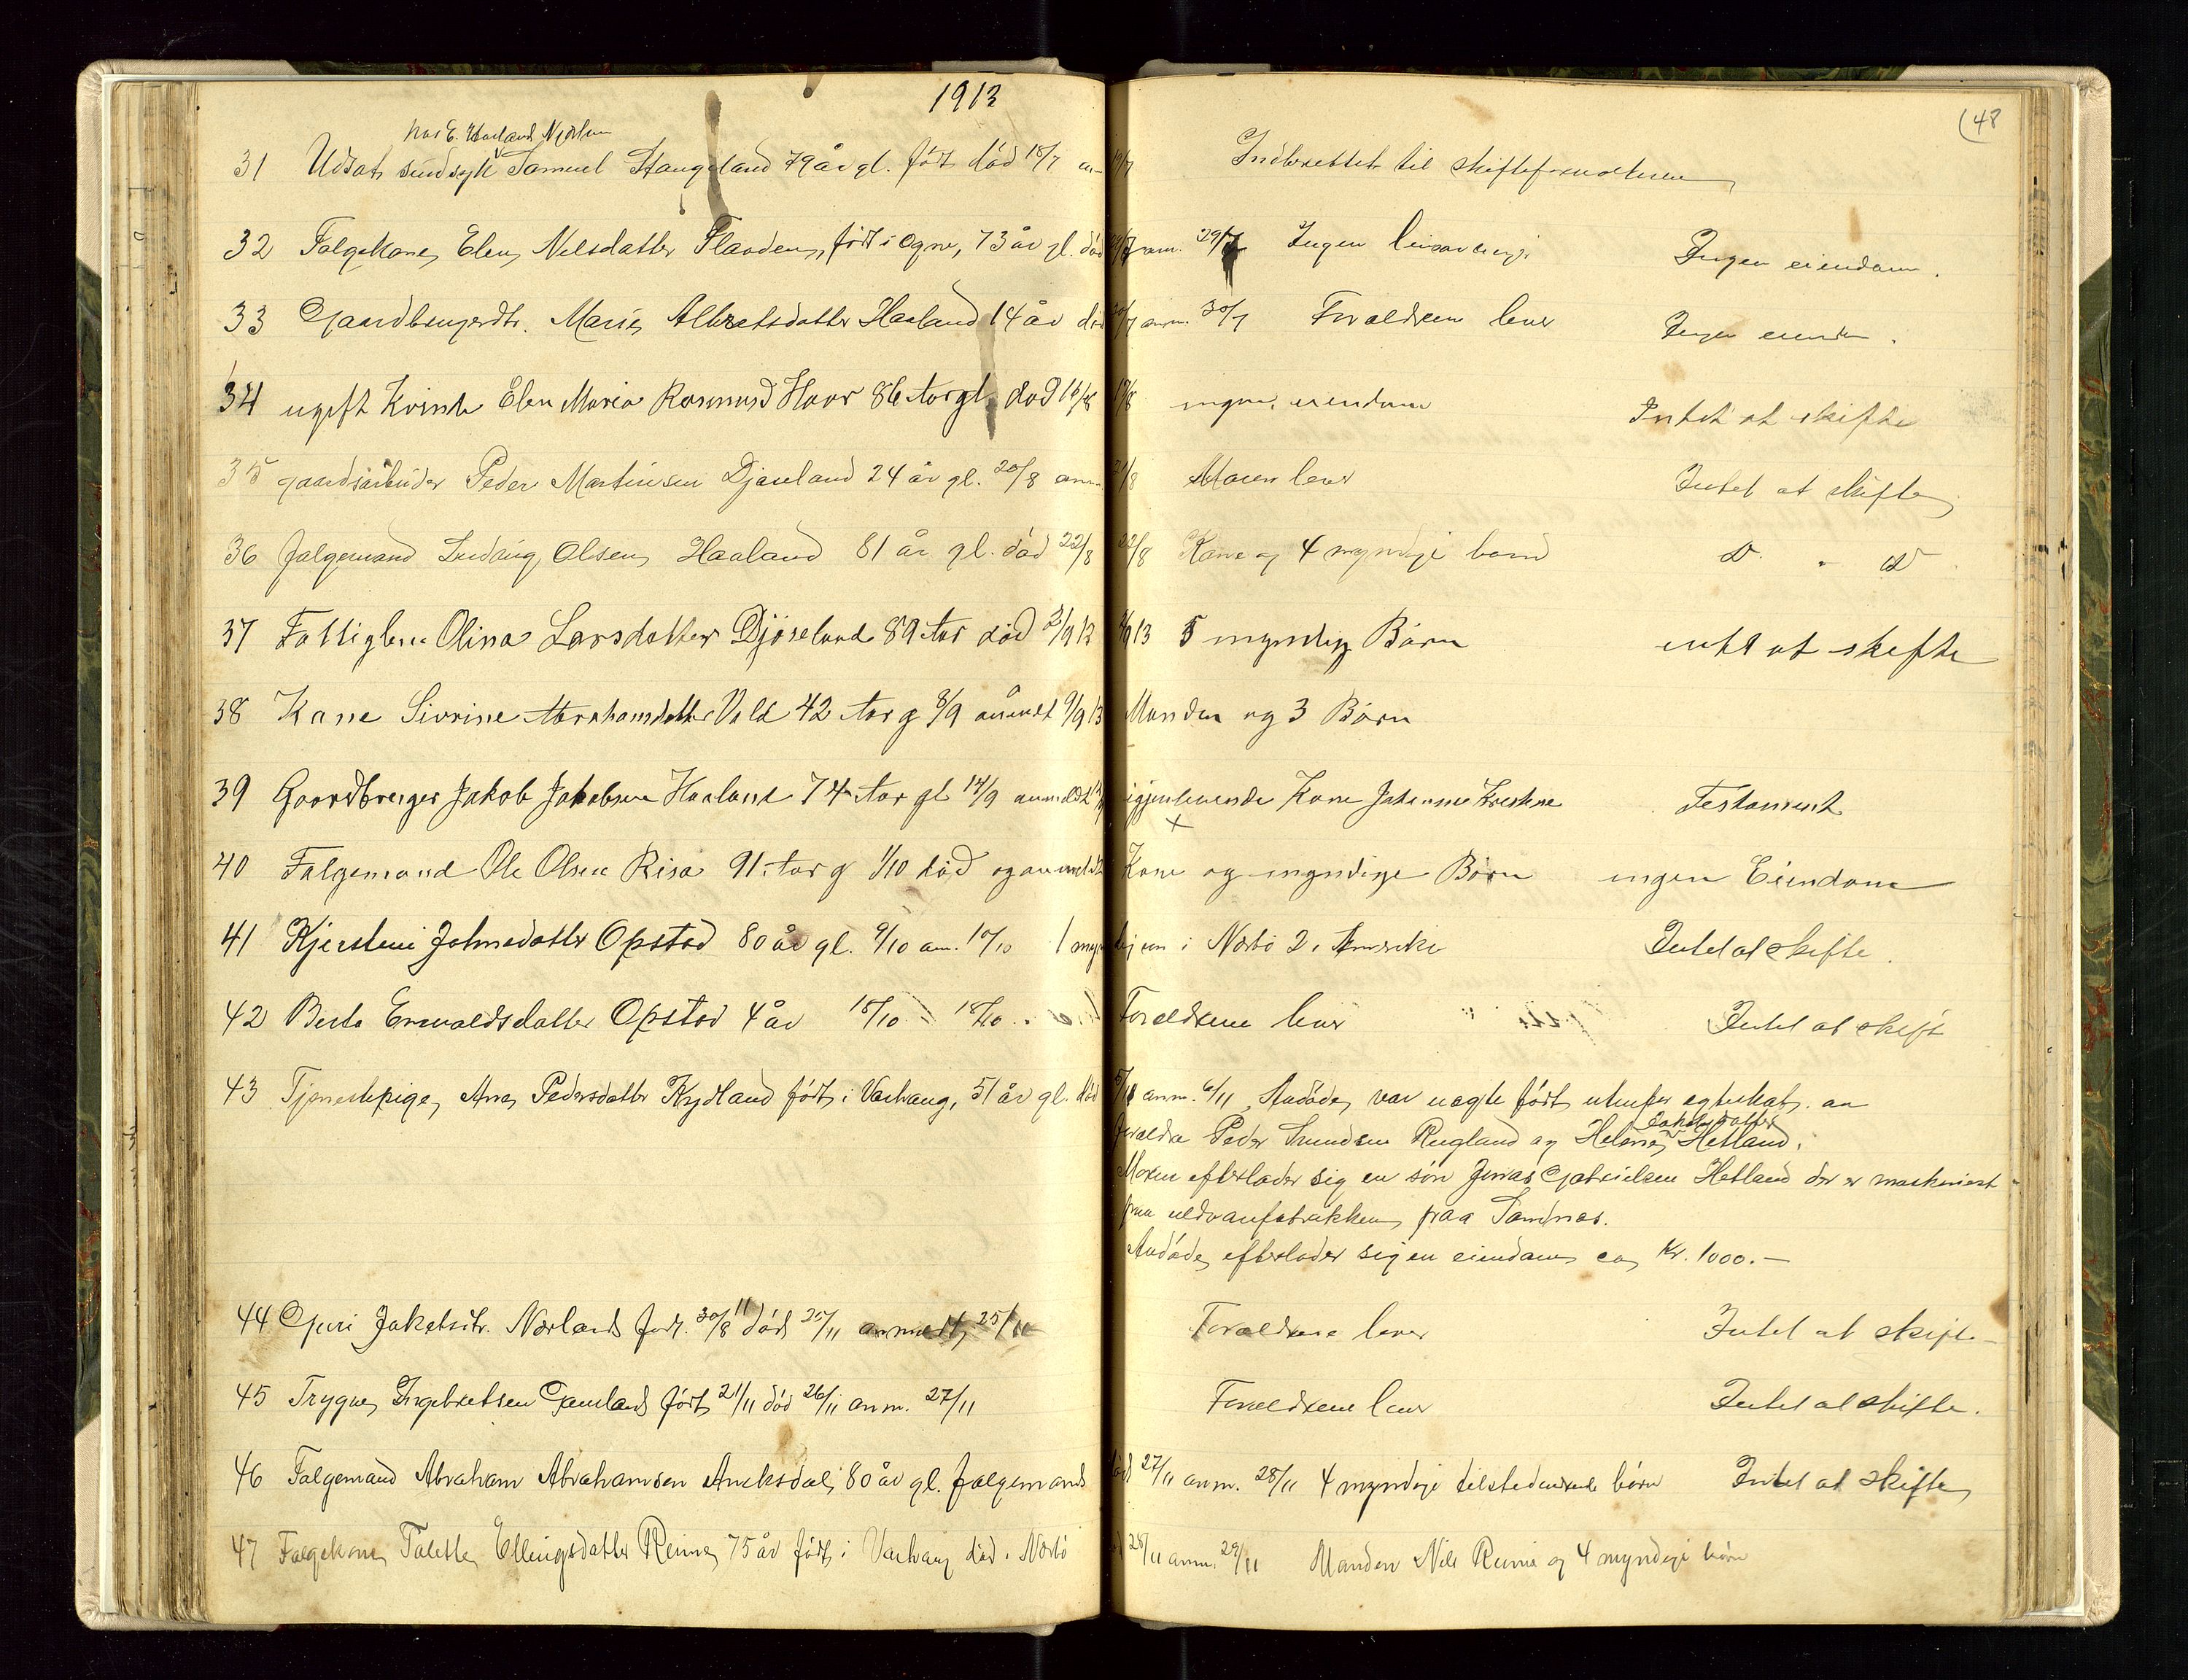 1913
(48
hos E. Haaland Nærbø
31 Udsat sindsyk Samuel Stangeland 79 år gl. født død 18/7 an- 19/7 Indberettet til skifteforvalteren
32 Folgekone, Elen Nelsdatter født i Ogne, 73 år gl. død anm. 29/7 Ingen livsarvinger Ingen eiendom.
33 Gaardbrugerdtr. Marie Albretsdatter Haaland 14 år død anm. 30/7 Foraldrene lever Ingen eiendom.
34 ugift Kvinde Elen Maria Rasmusd Haar 86 Aar gl død 16/8 17/8 ingen eiendom Intet at skifte
35 gaardsarbeider Peder Martinsen Djøseland 24 år gl. 20/8 anm Moren lever Intet at skifte
36 Folgemand Ludvig Olsen Haaland 81 år gl. død 22/8 22/8 Kone og 4 myndige barn D. " D
37 Fattiglem Olina Larsdatter Djøseland 89 Aar død 3/9 13 5 myndig Børn intet at skifte
38 Kone Sivrine Abrahamsdatter Vold 42 Aar g 8/9 anmeldt 9/9 13 Manden og 3 Børn
39 Gaardbruger Jakob Jakobsen Haaland 74 Aar gl 14/9 anmeldt igjenlevende Kone Johanne Testament
40 Folgemand Ole Olsen Risa 91 Aar g 1/10 død og anmeldt Kone og myndige Børn ingen Eiendom
41 Kjersteni Johnsdatter Opstad 80 år gl. 9/10 an. 10/10 1 i Nærbø 2 i Amerika Intet at skifte.
42 Berta Enevaldsdatter Opstad 4 år 18/10 18/10. Foreldrene lever Intet at skift
43 Tjenestepige, Ane Pedersdatter Kydland født i Varhaug, 51 år gl. død 5/11 anm. 6/11, Avdøde, var uægte født utenfor egteskab. av
foreldre Peder Rugland og Helene Jakobsdatter Hetland.
Moren efterlader sig en søn Jonas Gabrielsen Hetland der er maskinist
paa uldvarefabrikken paa Sandnes.
Avdøde, efterlader sig en eiendom ca, Kr. 1000.—
44 Guri Jakobsdtr. Nærland født 30/8 11 død 25/11 anmeldt 25/11 Foraldrene lever Intet at skifte
45 Trygve Ingebretsen født 21/11 død 26/11 anm. 27/11 Foreldrene lever Intet at skifte.
46 Folgemand Abraham Abrahamsen Aneksdal, 80 år gl. folgemand død 27/11 anm. 28/11 4 myndige tilstedeværende børn Intet at skifte
47 Folgekone Talette Ellingsdatter Reime, 75 år født i Varhaug død i Nærbø 28/11 anm. 29/11 Manden Nils Reime og 4 myndige børn